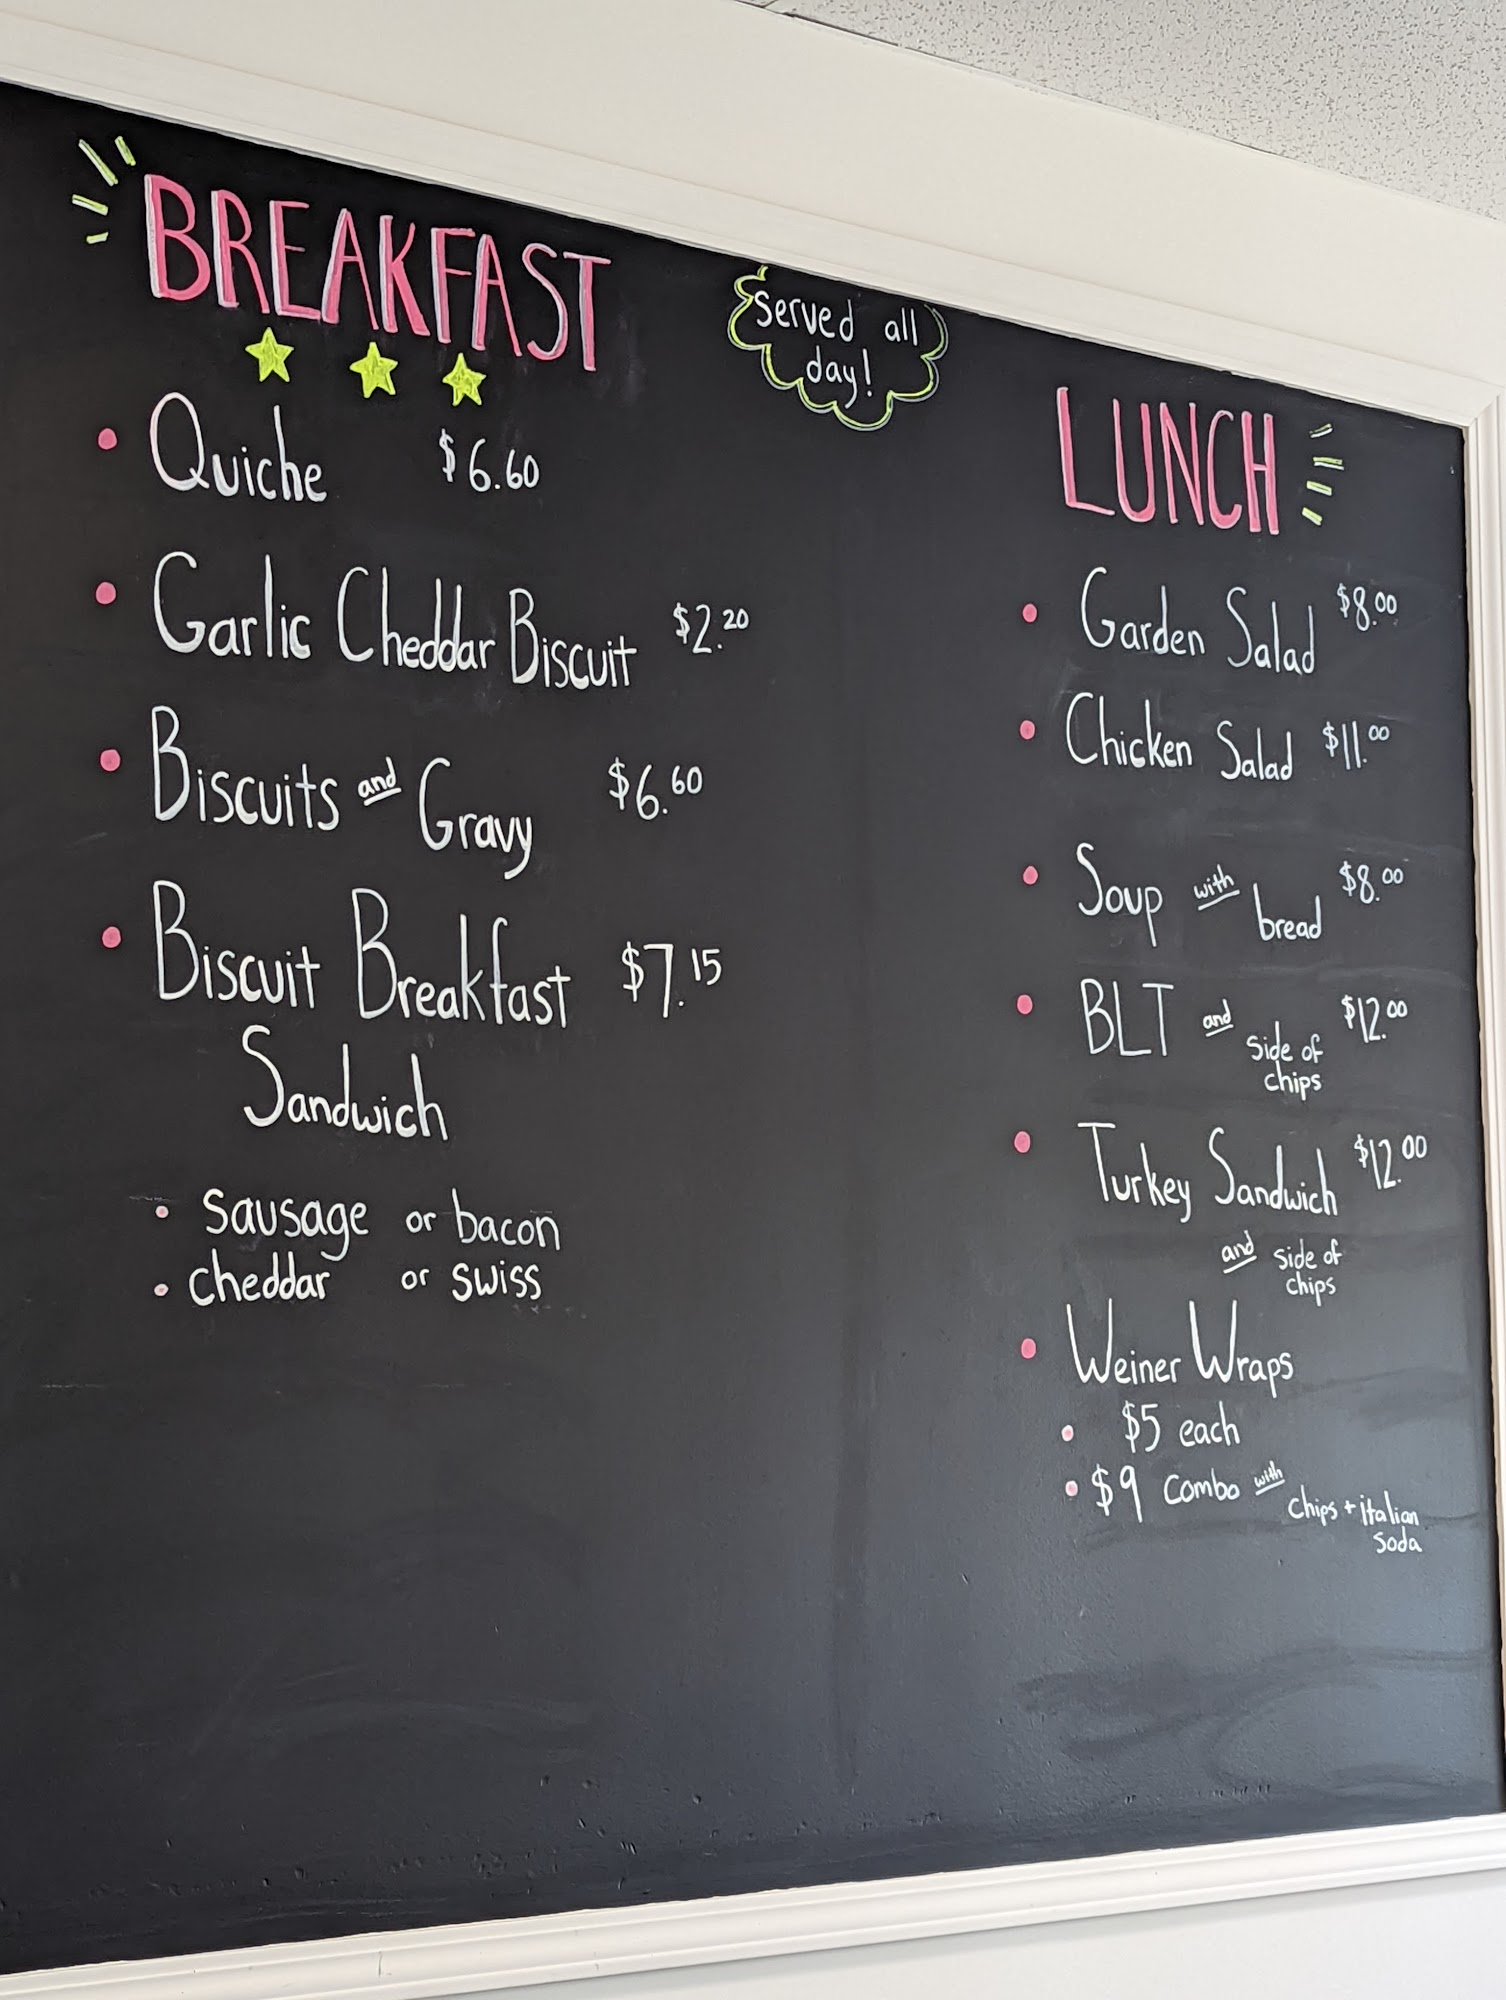 BREAKFAST
served all
day!
• Quiche $6.60
• Garlic Cheddar Biscuit $2.20
• Biscuits and Gravy $6.60
• Biscuit Breakfast $7.15
Sandwich
• sausage or bacon
• cheddar or swiss
LUNCH
• Garden Salad $8.00
• Chicken Salad $11.00
• Soup with bread $8.00
• BLT and side of $12.00
chips
• Turkey Sandwich $12.00
and side of
chips
• Weiner Wraps
• $5 each
• $9 combo with chips + italian
soda